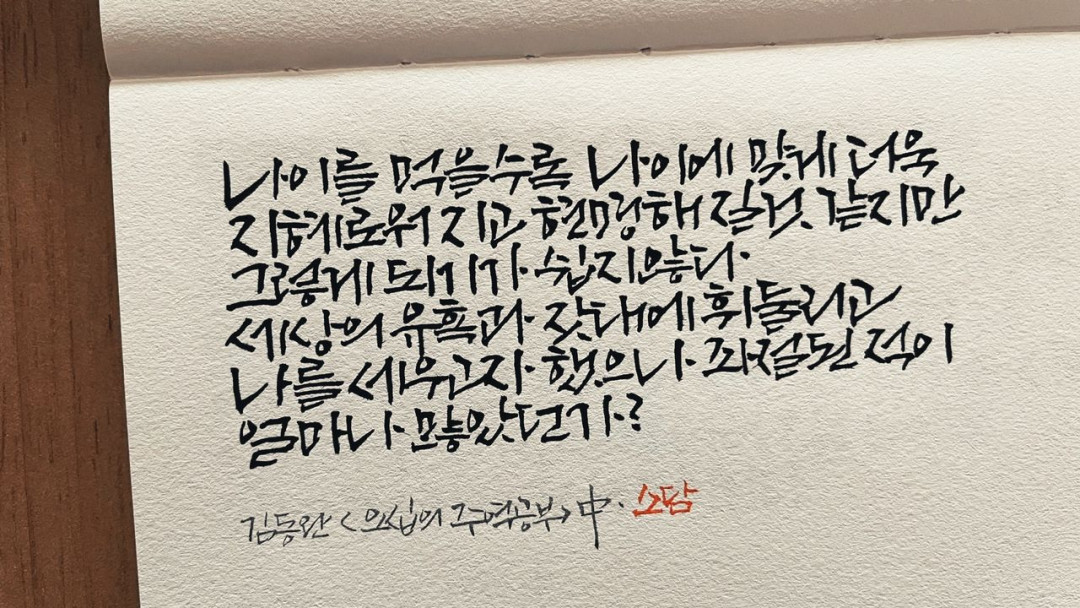 나이를 먹을수록 나이에 맞게 더욱
지혜로워 지고 현명해 질것 같지만
그렇게 되기가 쉽지않다.
세상의 유혹과 잣대에 휘둘리고
나를 세우고자 했으나 좌절된 적이
얼마나 많았던가?
김동완 <오십의 주역공부> 中. 소담